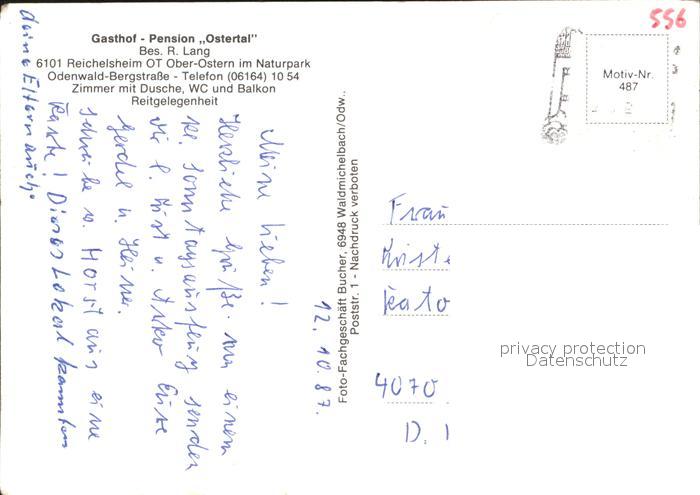 556
Gasthof - Pension „Ostertal"
Bes. R. Lang
6101 Reichelsheim OT Ober-Ostern im Naturpark
Odenwald-Bergstraße - Telefon (06164) 10 54
Zimmer mit Dusche, WC und Balkon
Reitgelegenheit
Motiv-Nr.
487
Foto-Fachgeschäft Bucher, 6948 Waldmichelbach/Odw.,
Poststr. 1 - Nachdruck verboten
12.10.87.
Meine Lieben!
Herzliche Grüße von einem
Sonntagsausflug senden
Eure
Gerdel u. Heiner.
schreibe v. Horst aus eine
Karte! Dieses Lokal kannten
deine Eltern auch.
Frau
Krist
Kato
4070
D.
privacy protection
Datenschutz